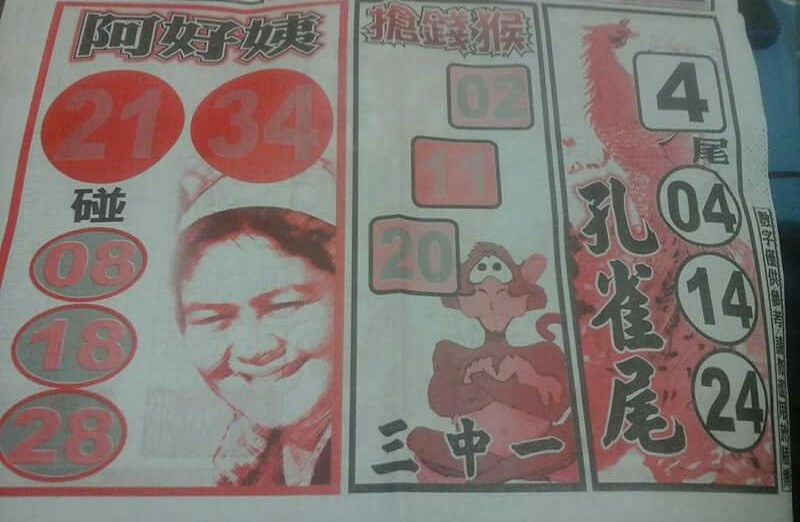 阿好姨
21 34
碰
08
18
28
搶錢猴
02
11
20
三中一
4
尾
孔雀尾
04
14
24
數字僅供參考